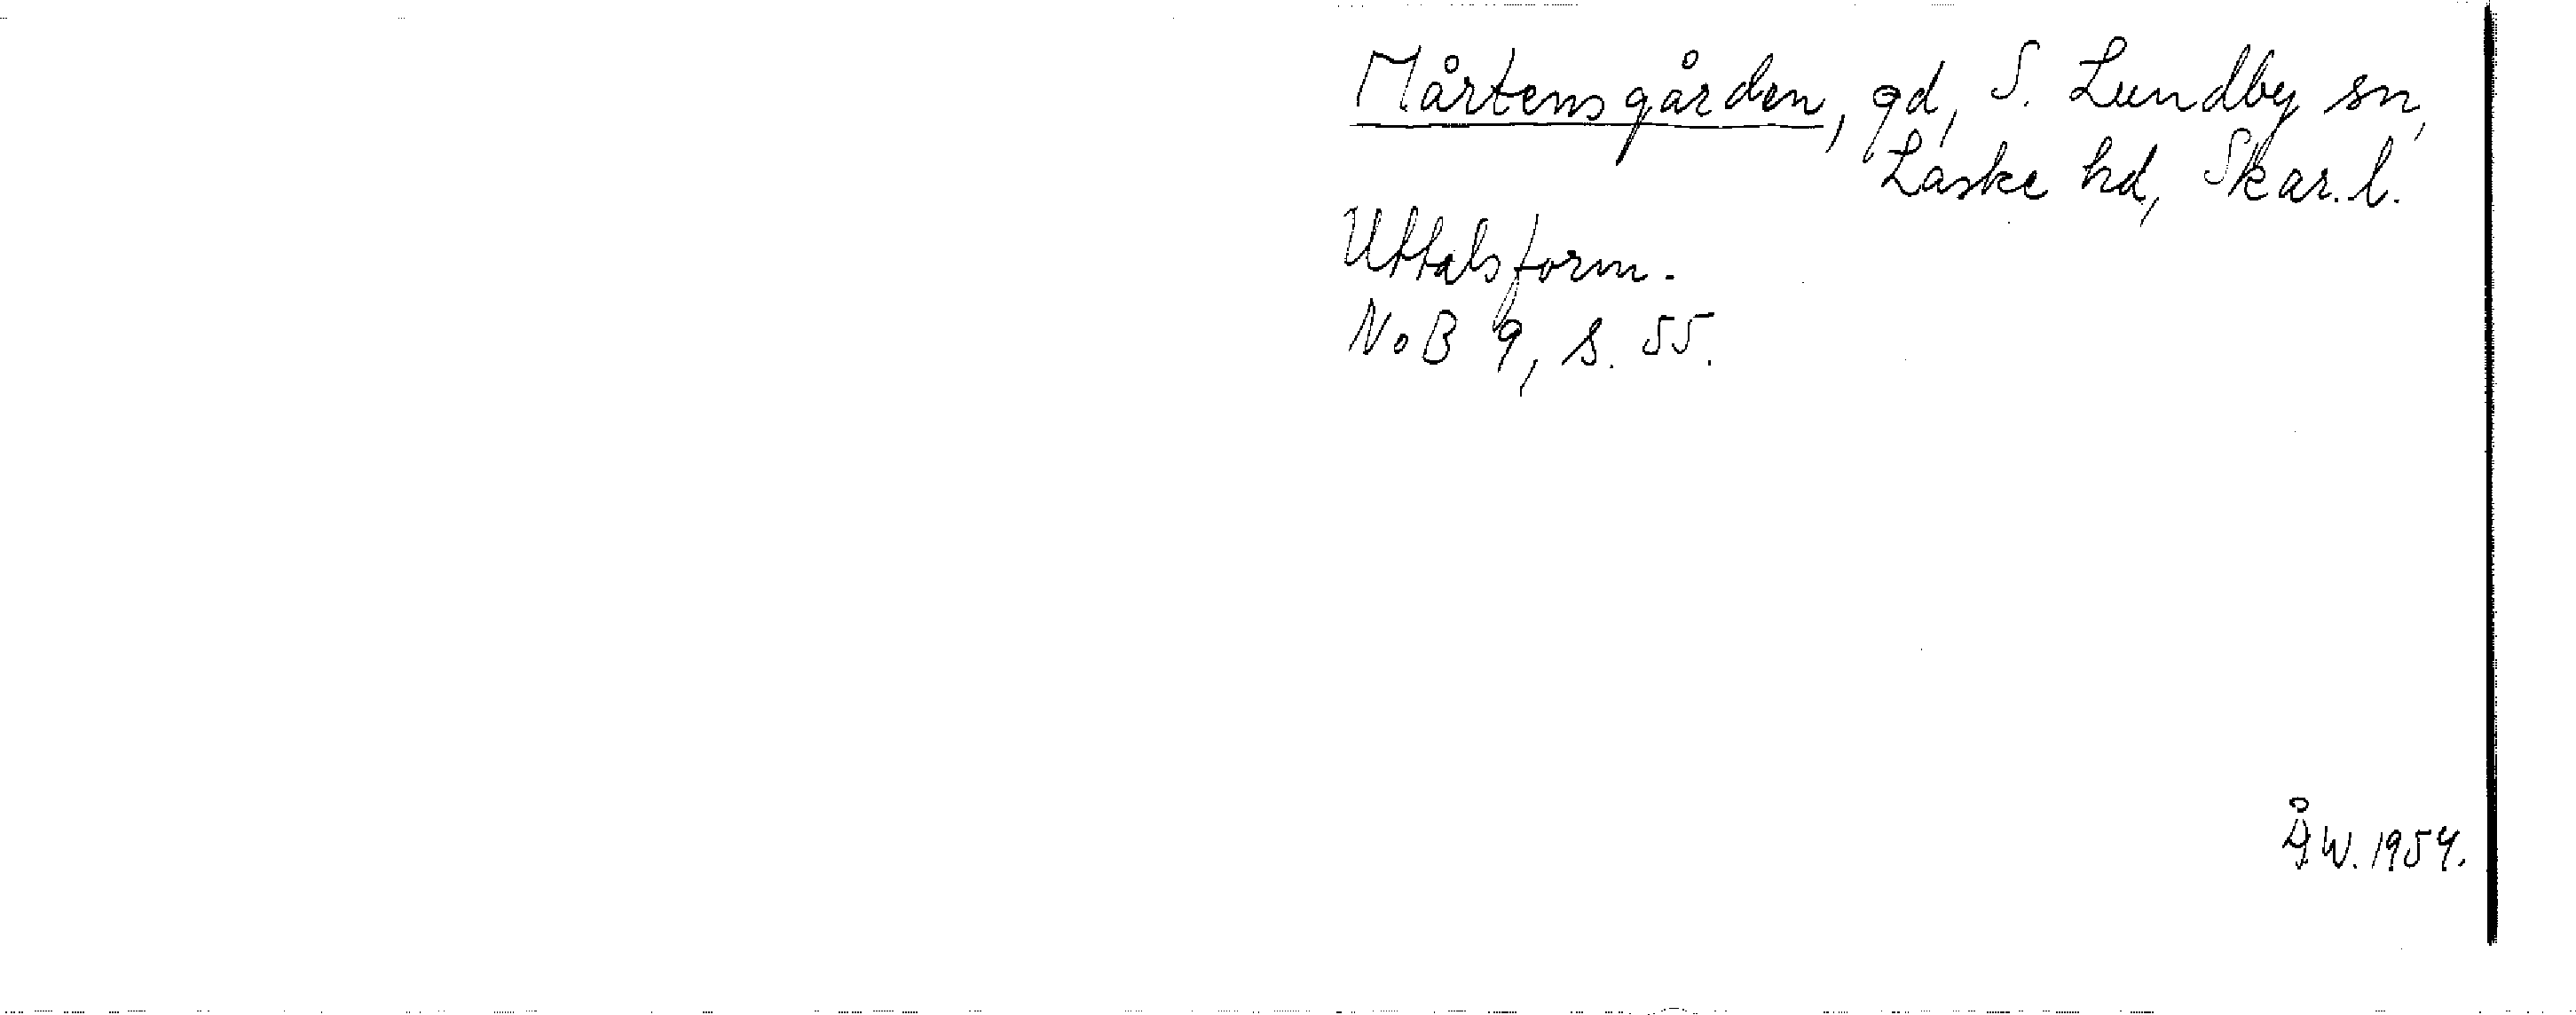 Mårtensgården, gd, S. Lundby sn,
Laske hd, Skar. l.
Uttalsform.
NoB 9, s. 55.
ÅW. 1954.